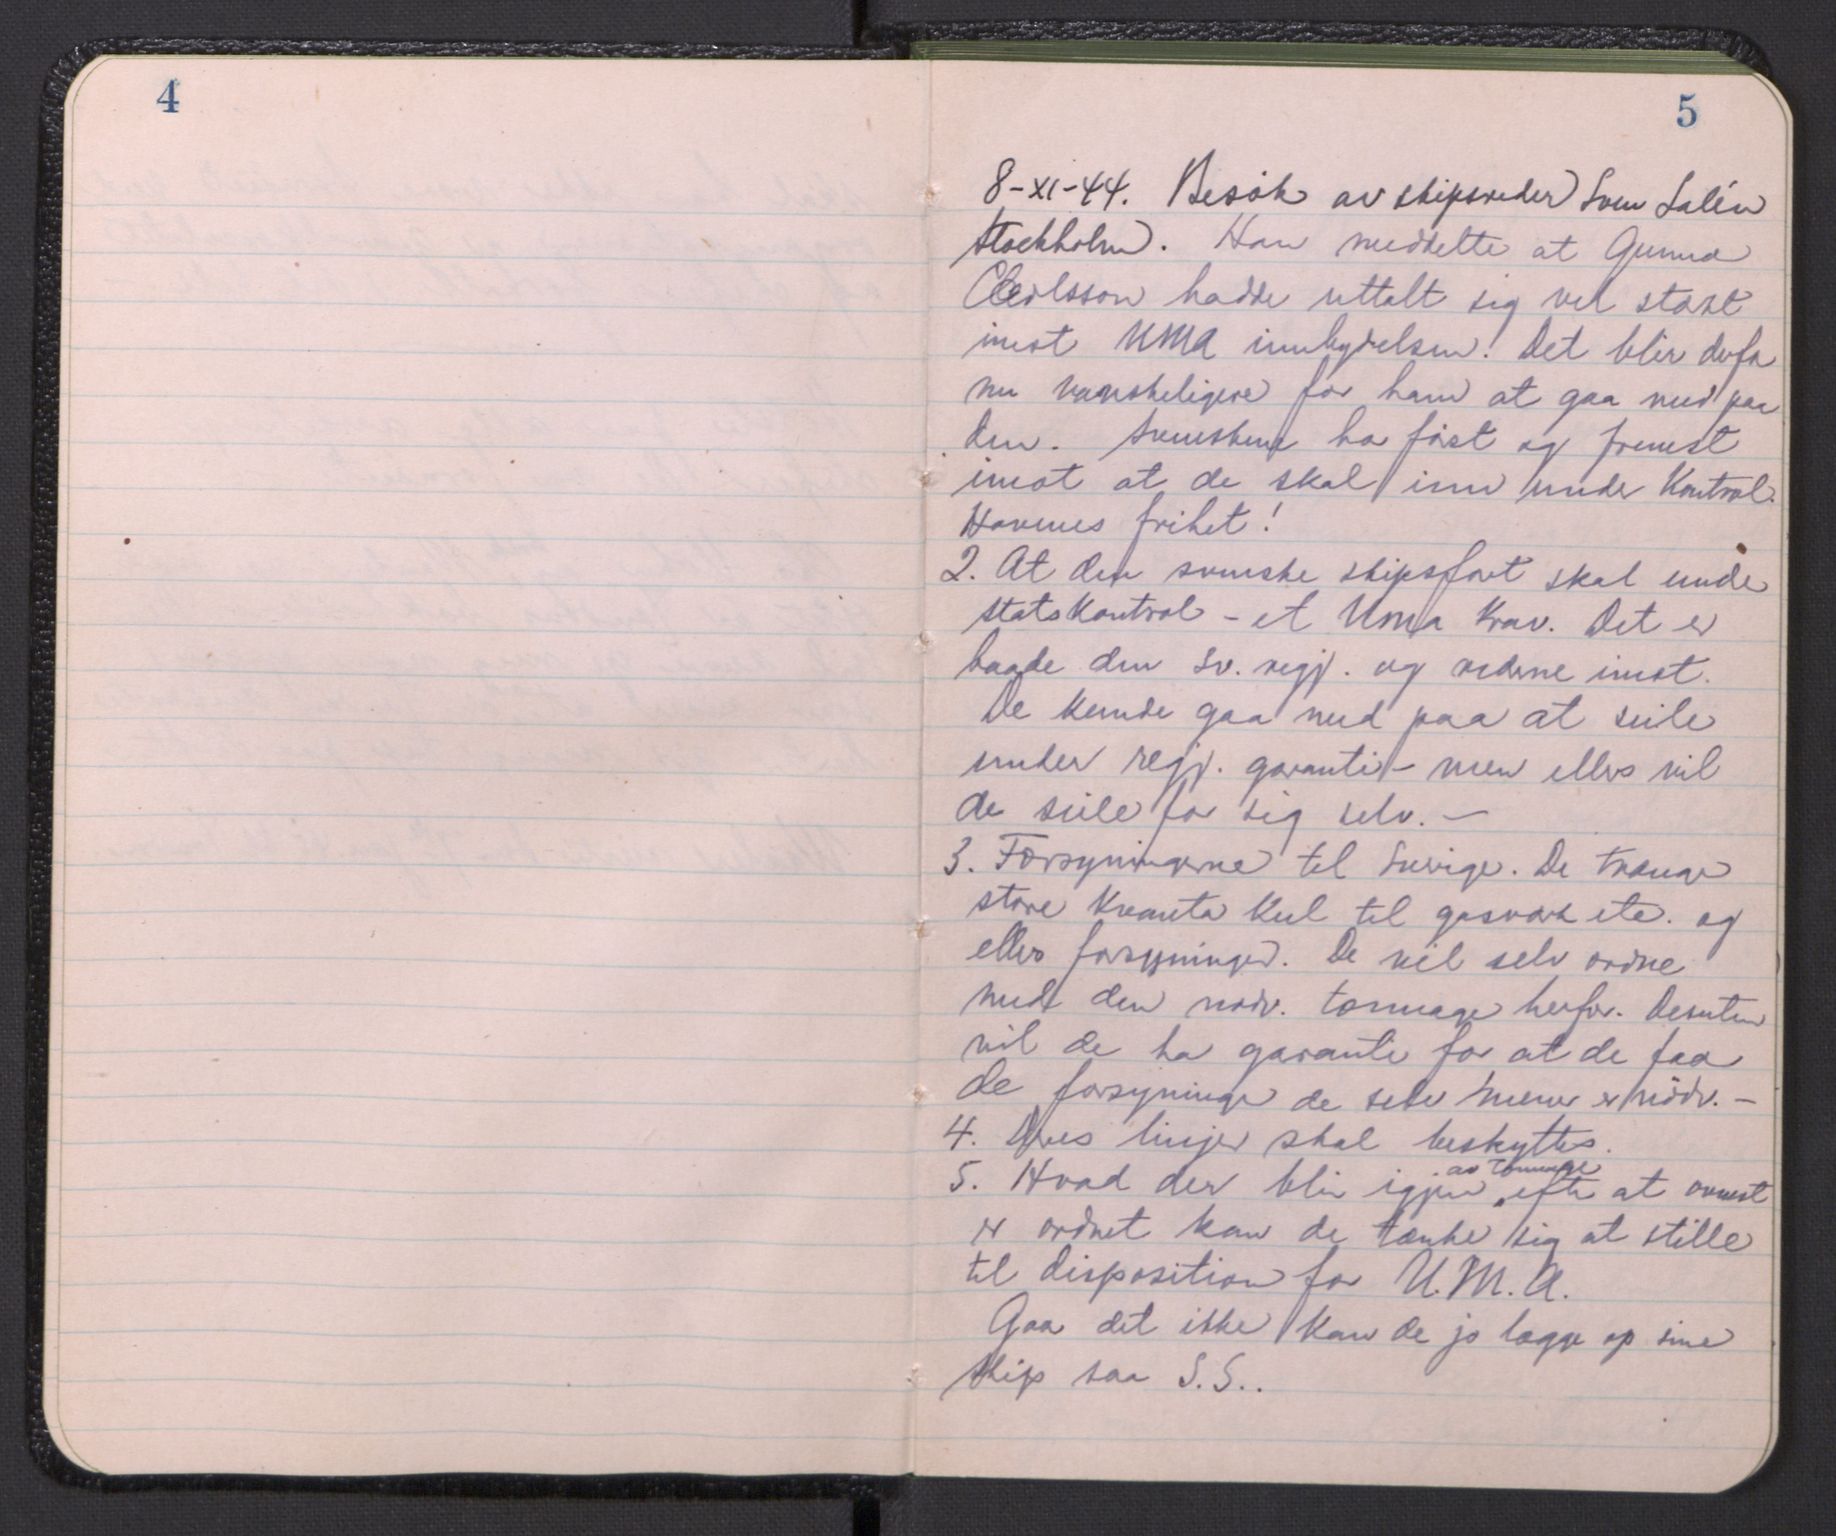 4
5
8-XI-44. Besök av skipsreder Sven Salén
Stockholm. Han meddelte at Gunnar
Carlsson hadde uttalt sig vel stærkt
imot UMA innbydelsen. Det blir derfor
nu vanskeligere for ham at gaa med paa
den. Svenskene har först og fremst
imot at de skal inn under Kontrol.
Havenes frihet!
2. At den svenske skipsfart skal under
statskontrol - et Uma krav. Det er
baade den Sv. regj. og rederne imot.
De kunde gaa med paa at seile
under regj. garanti - men ellers vil
de seile for sig selv. -
3. Forsyningerne til Sverige. De trænger
store kvanta kul til gasverk etc. og
ellers forsyninger. De vil selv ordne
med den nödv. tonnage herfor. Desuten
vil de ha garanti for at de faar
de forsyninger de selv mener er nödv. -
4. Deres linjer skal beskyttes.
5. Hvad der blir igjen av tonnage efter at ovenst
er ordnet kan de tænke sig at stille
til disposition for U.M.A.
Gaar det ikke kan de jo lægge op sine
skip saa S.S..